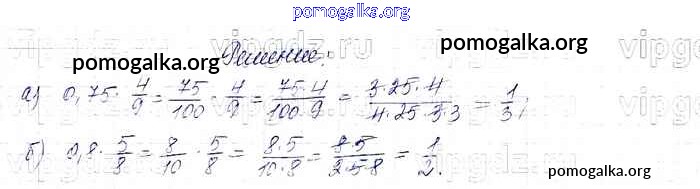 pomogalka.org
vipgdz.ru
pomogalka.org
pomogalka.org
Решение:
а) 0,75 · 4/9 = 75/100 · 4/9 = 75·4/100·9 = 3·25·4/4·25·3·3 = 1/3;
б) 0,8 · 5/8 = 8/10 · 5/8 = 8·5/10·8 = 8·5/2·5·8 = 1/2.
pomogalka.org
pomogalka.org